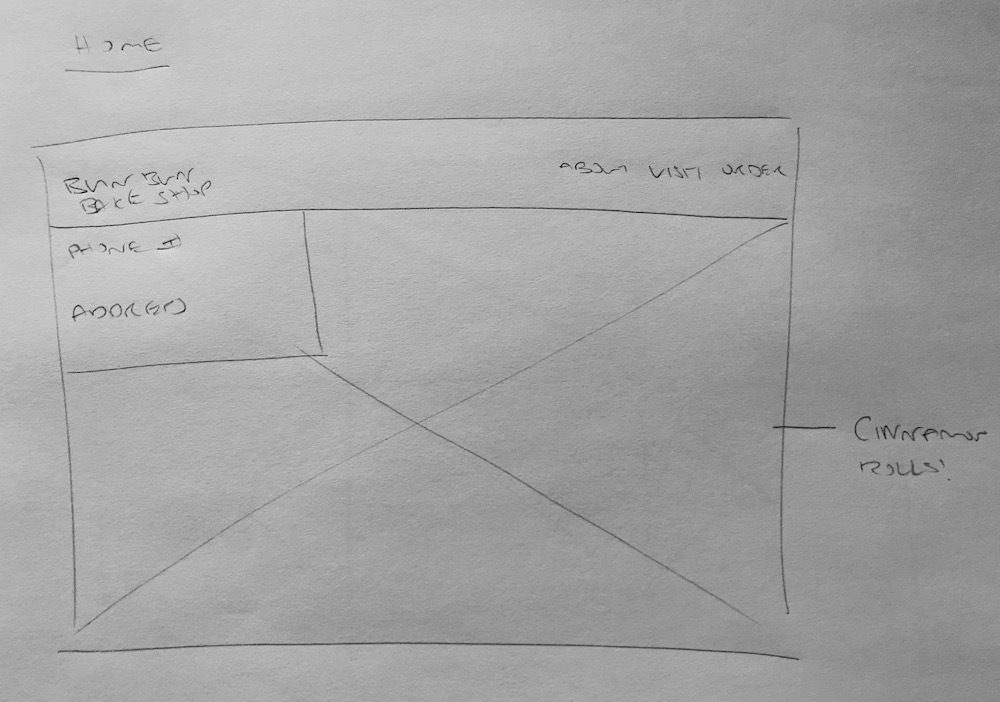 HOME
BUN BUN
BAKE SHOP
ABOUT VISIT ORDER
PHONE #
ADDRESS
CINNAMON
ROLLS!